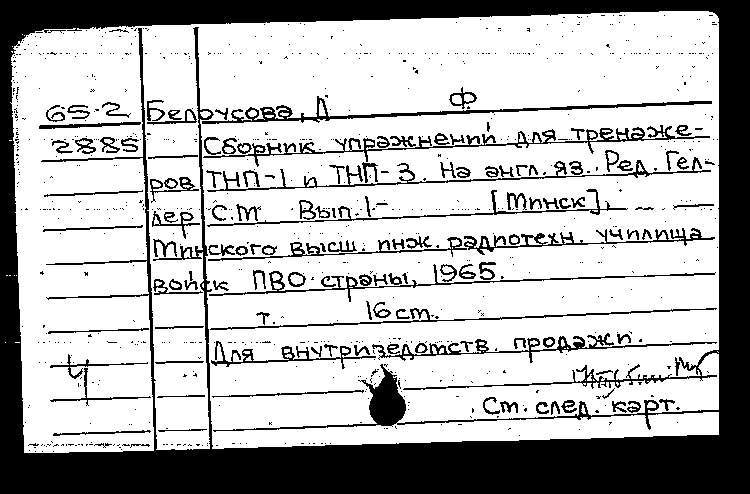 65-2 Белоусова, Д Ф
2885 Сборник упражнений для тренаже-
ров ТНП-1 и ТНП-3. На англ. яз. Ред. Гел-
лер С.М Вып. 1- [Минск],
Минского высш. инж. радиотехн. училища
войск ПВО страны, 1965.
т. 16 ст.
Для внутриведомств. продажи.
Ч
Ст. след. карт.